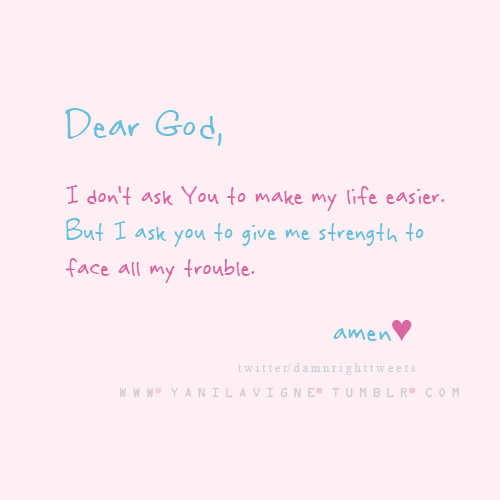 Dear God,
I don't ask You to make my life easier.
But I ask you to give me strength to
face all my trouble.
amen♥
twitter/damnrighttweets
WWW.YANILAVIGNE.TUMBLR.COM